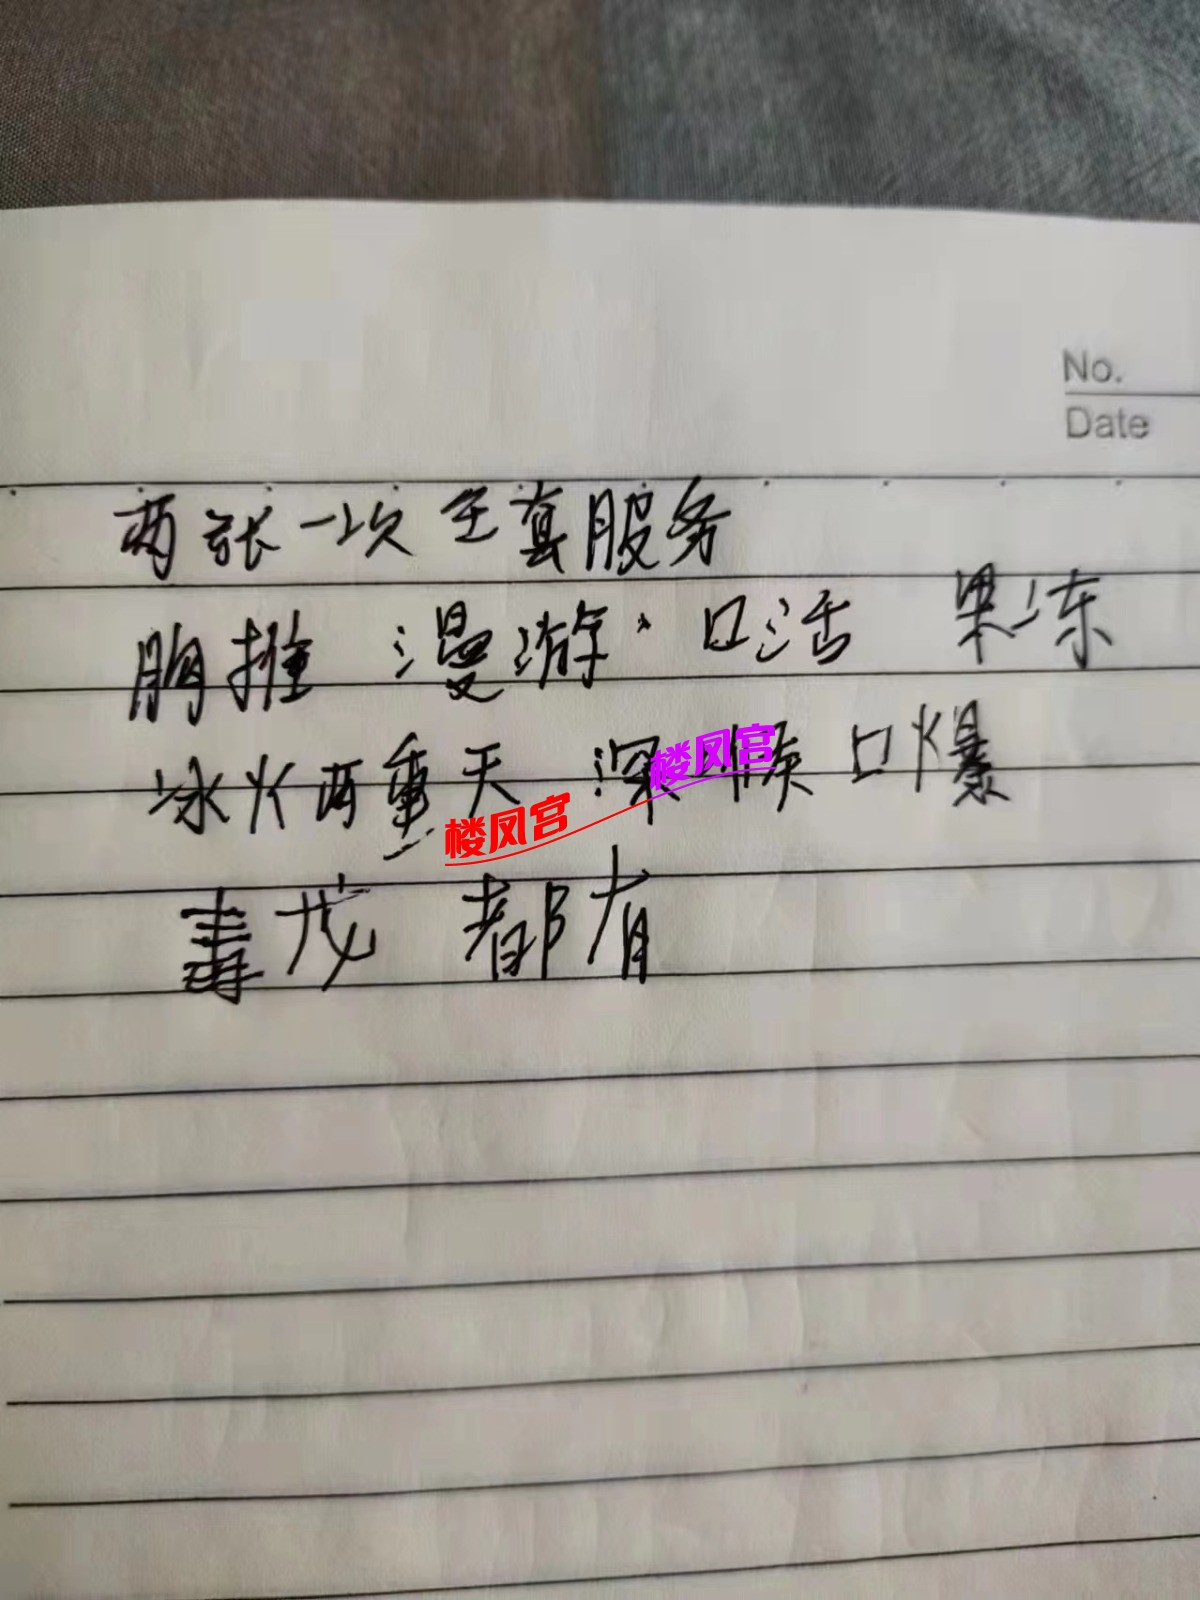 No.
Date
两张一次全套服务
胸推 漫游、口活 果冻
冰火两重天 深喉 口爆
楼凤宫
楼凤宫
毒龙 都有